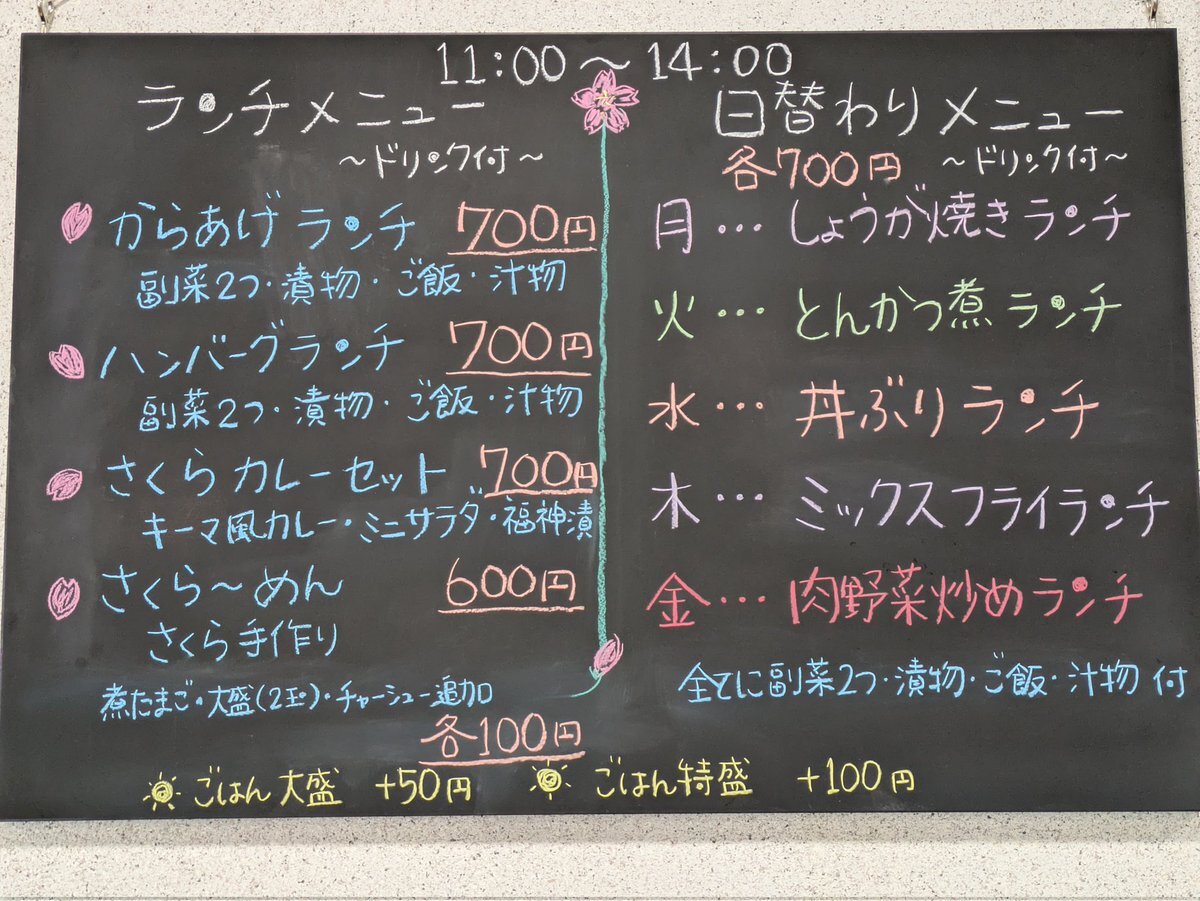 11:00～14:00
ランチメニュー
～ドリンク付～
からあげランチ 700円
副菜2つ・漬物・ご飯・汁物
ハンバーグランチ 700円
副菜2つ・漬物・ご飯・汁物
さくらカレーセット 700円
キーマ風カレー・ミニサラダ・福神漬
さくら～めん 600円
さくら手作り
煮たまご・大盛(2玉)・チャーシュー追加
各100円
日替わりメニュー
各700円 ～ドリンク付～
月…しょうが焼きランチ
火…とんかつ煮ランチ
水…丼ぶりランチ
木…ミックスフライランチ
金…肉野菜炒めランチ
全てに副菜2つ・漬物・ご飯・汁物 付
ごはん大盛 +50円
ごはん特盛 +100円